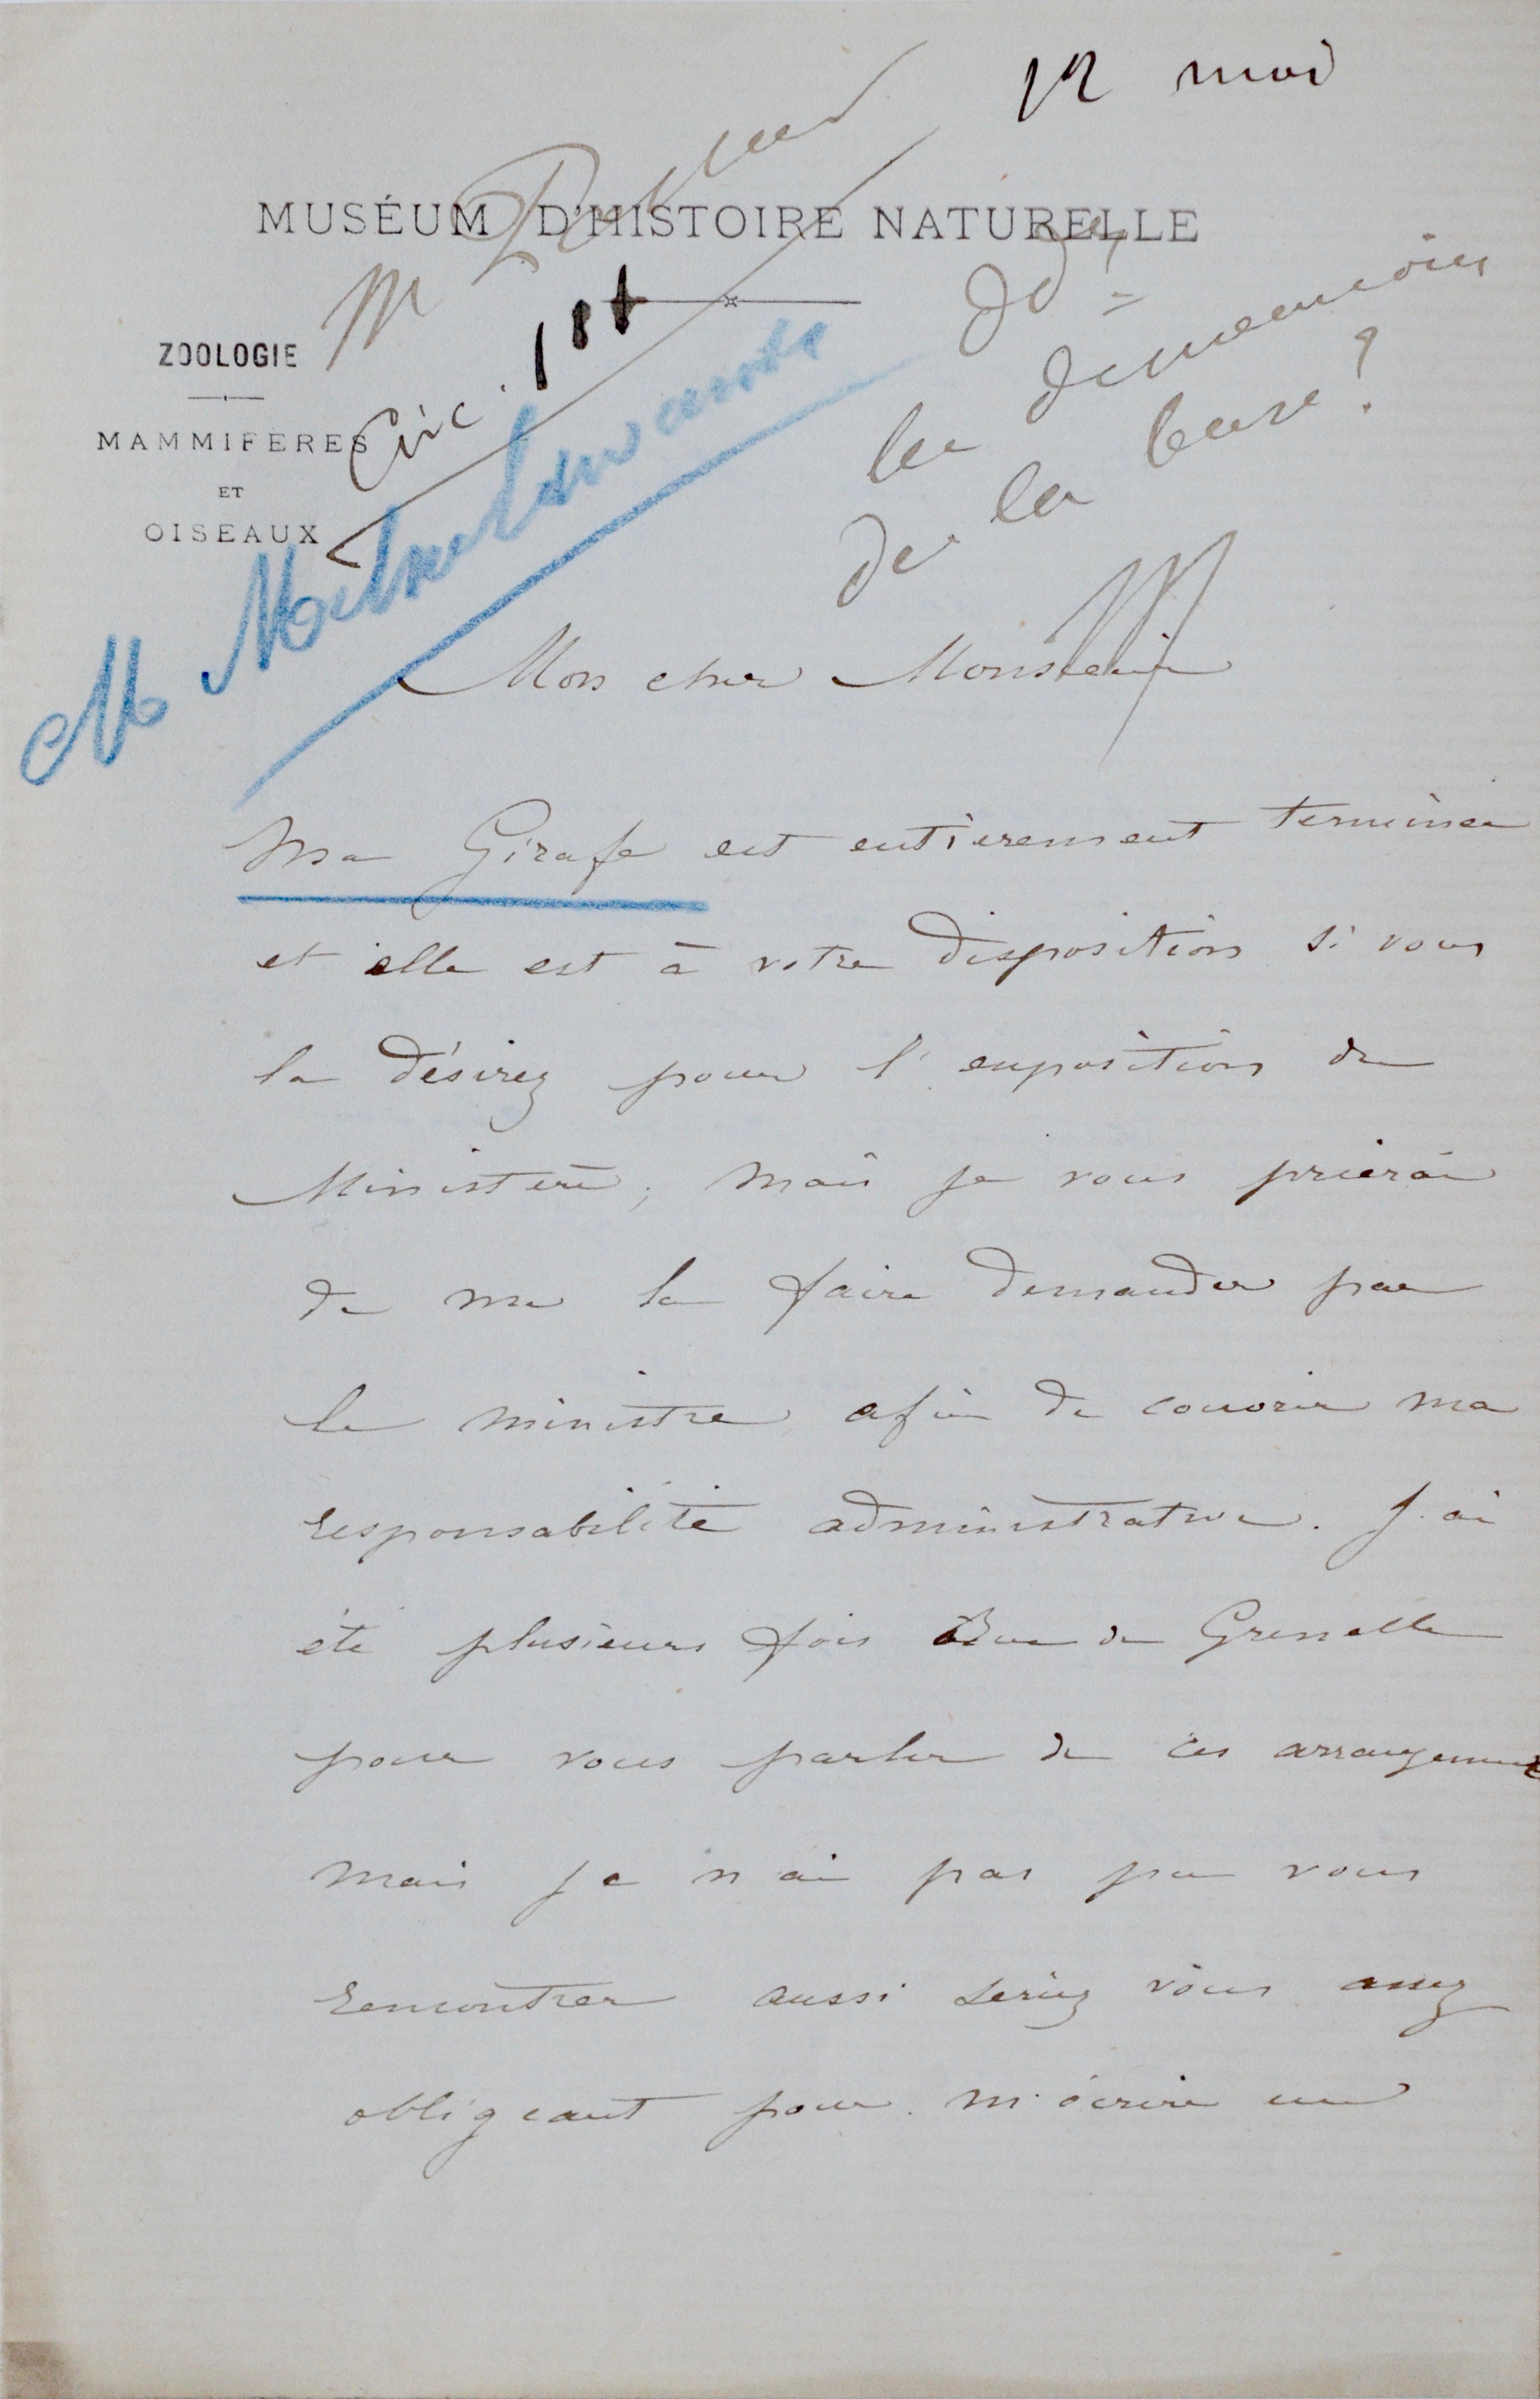 12 mai
MUSÉUM D'HISTOIRE NATURELLE
M
ZOOLOGIE
MAMMIFÈRES
ET
OISEAUX
M Milne Edwards
les dimensions
de la base ?
Mon cher Monsieur
Ma Girafe est entièrement terminée
et elle est à votre disposition si vous
la désirez pour l'exposition du
Ministère ; mais je vous prierai
de me la faire demander par
le ministre afin de couvrir ma
responsabilité administrative. J'ai
été plusieurs fois Rue de Grenelle
pour vous parler de ces arrangements
mais je n'ai pas pu vous
rencontrer aussi seriez vous assez
obligeant pour m'écrire un